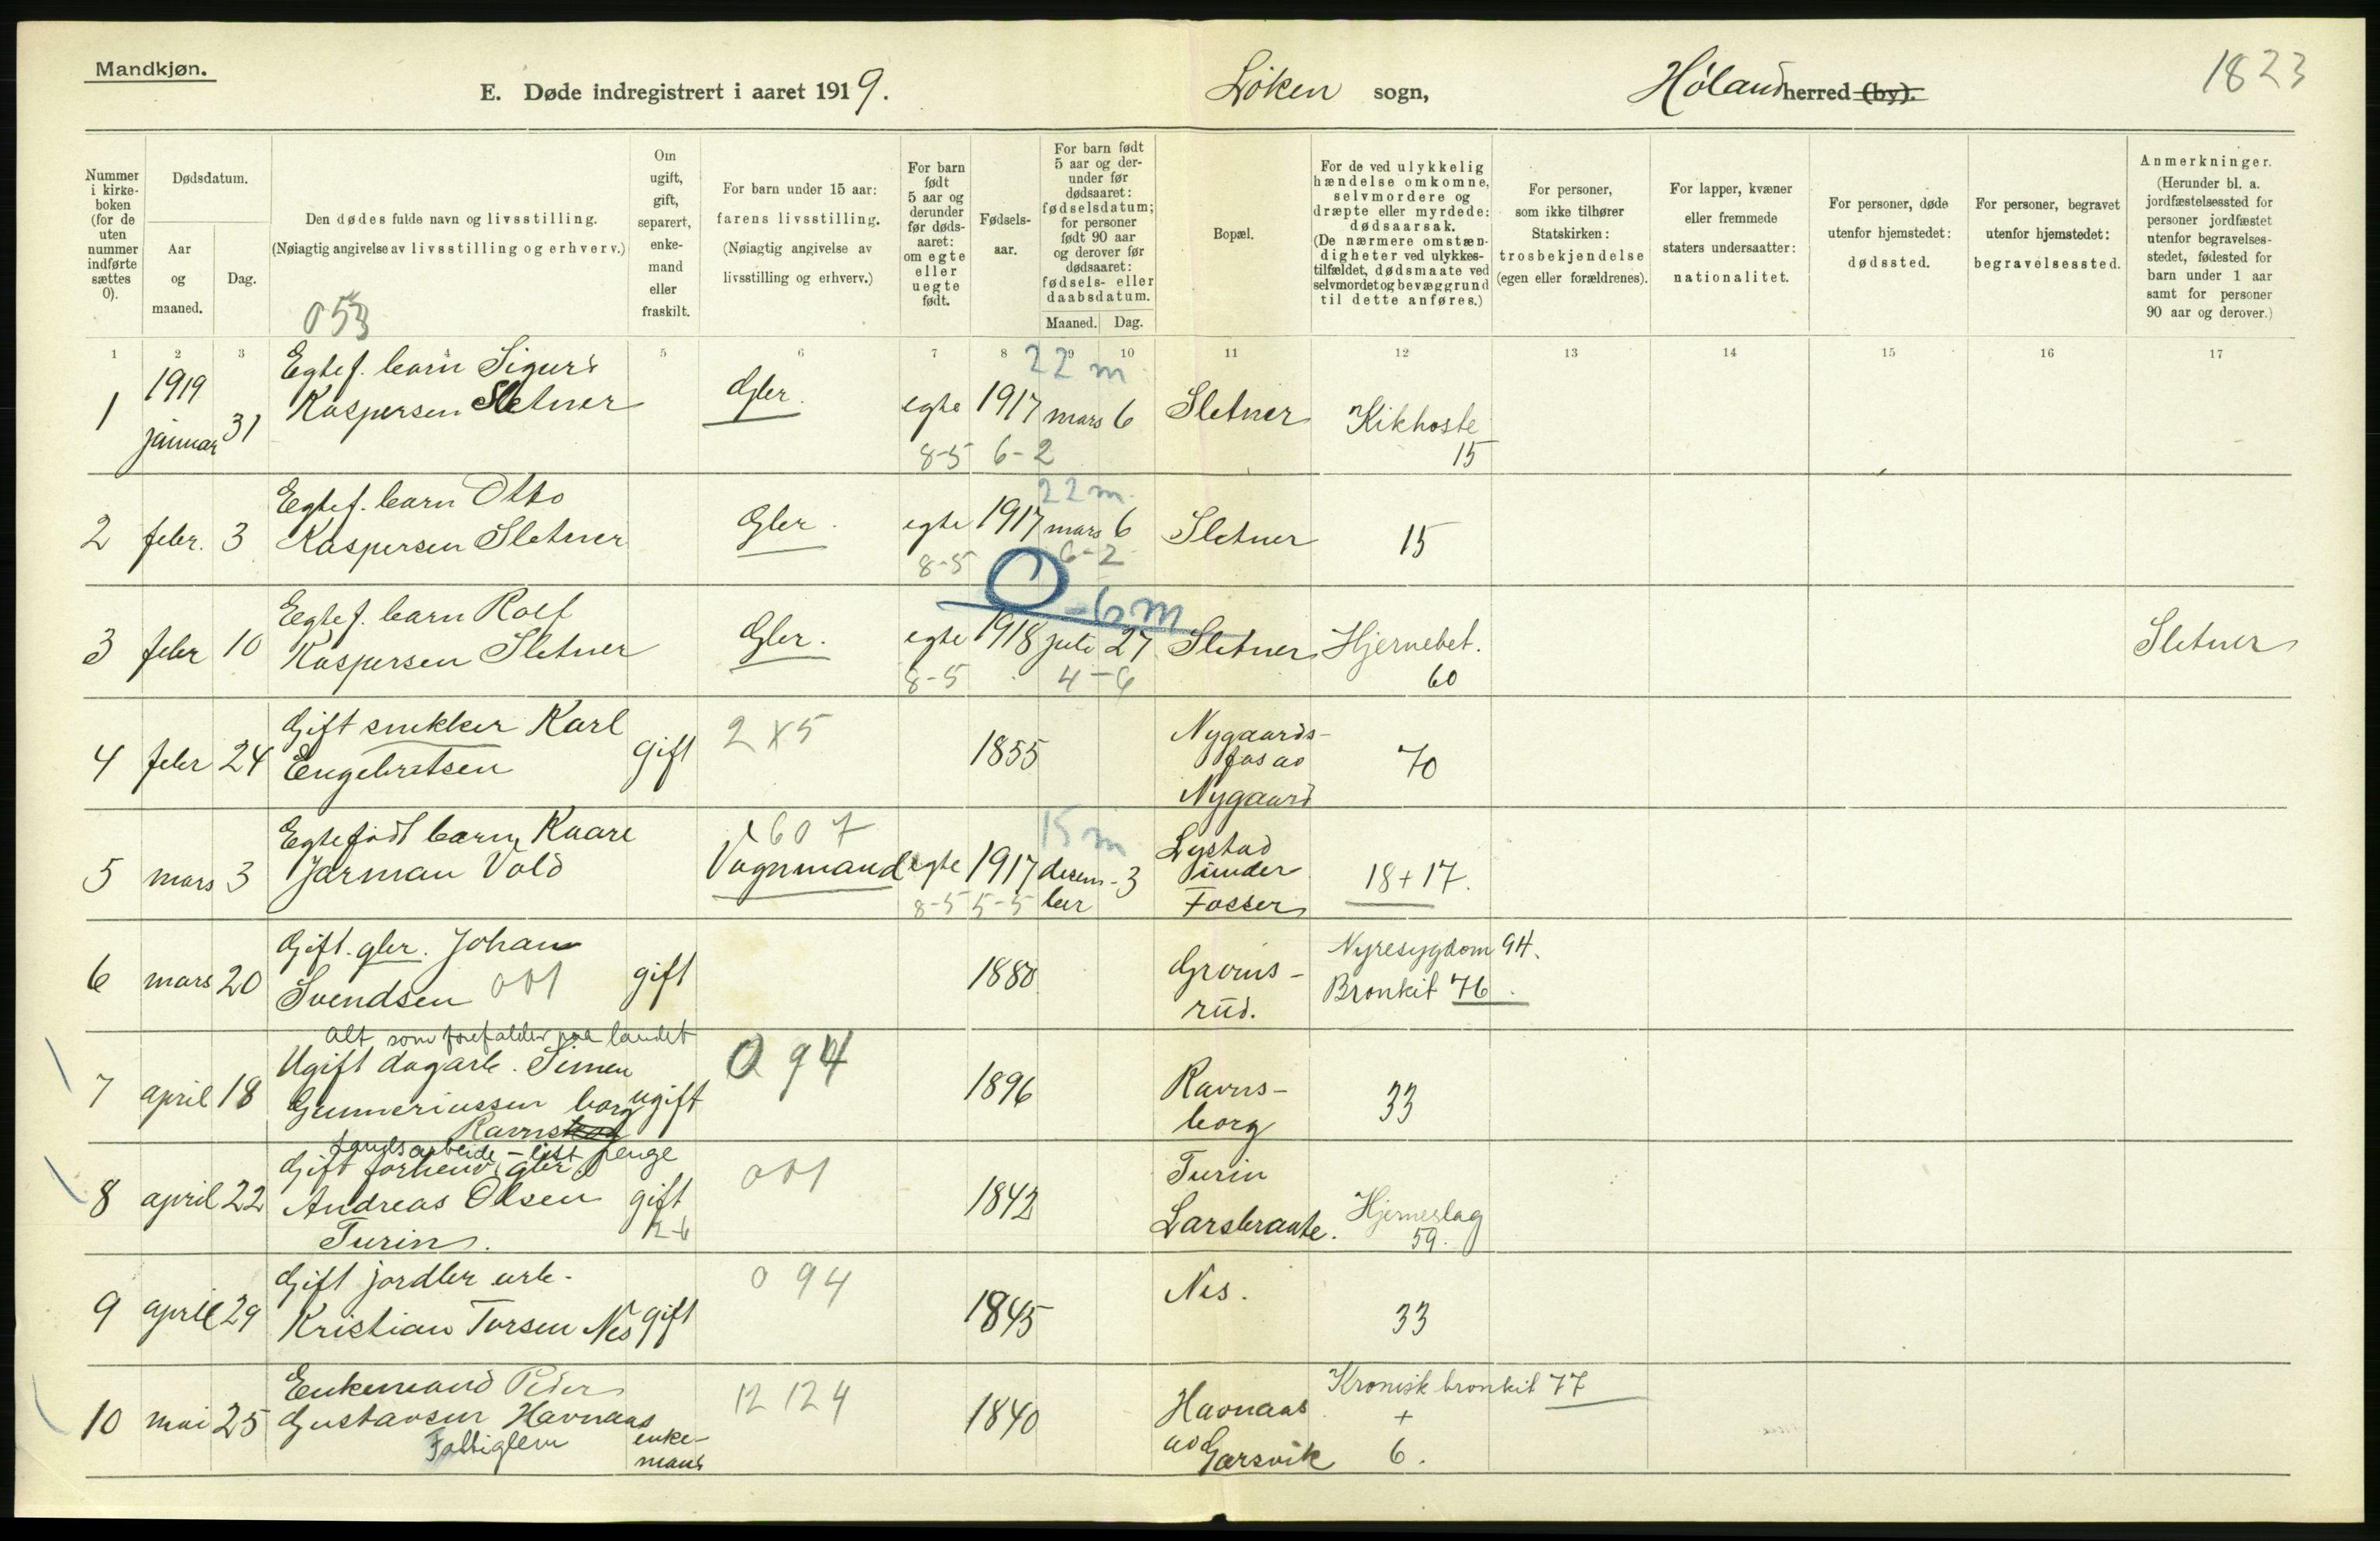 Mandkjøn.
E. Døde indregistrert i aaret 1919.
Løken sogn,
Høland herred (by).
1823
Nummer i kirkeboken (for de uten nummer indførte sættes 0).
Dødsdatum.
Aar og maaned.
Dag.
Den dødes fulde navn og livsstilling.
(Nøiagtig angivelse av livsstilling og erhverv.)
053
Om ugift, gift, separert, enkemand eller fraskilt.
For barn under 15 aar: farens livsstilling.
(Nøiagtig angivelse av livsstilling og erhverv.)
For barn født 5 aar og derunder før dødsaaret: om egte eller uegte født.
Fødselsaar.
For barn født 5 aar og derunder før dødsaaret: fødselsdatum; for personer født 90 aar og derover før dødsaaret: fødsels- eller daabsdatum.
Maaned. Dag.
Bopæl.
For de ved ulykkelig hændelse omkomne, selvmordere og dræpte eller myrdede: dødsaarsak.
(De nærmere omstændigheter ved ulykkestilfældet, dødsmaate ved selvmordet og bevæggrund til dette anføres.)
For personer, som ikke tilhører Statskirken: trosbekjendelse (egen eller forældrenes).
For lapper, kvæner eller fremmede staters undersaatter: nationalitet.
For personer, døde utenfor hjemstedet: dødssted.
For personer, begravet utenfor hjemstedet: begravelsessted.
Anmerkninger.
(Herunder bl. a. jordfæstelsessted for personer jordfæstet utenfor begravelsesstedet, fødested for barn under 1 aar samt for personer 90 aar og derover.)
1 2 3 4 5 6 7 8 9 10 11 12 13 14 15 16 17
22 m
1 1919 januar 31 Egtef. barn Sigurd Kaspersen Sletner Gbr. egte 1917 mars 6 Sletner Kikhoste 15
8-5 6-2
22 m.
2 febr. 3 Egtef. barn Otto Kaspersen Sletner Gbr. egte 1917 mars 6 Sletner 15
8-5 6-2
0 - 6 m
3 febr 10 Egtef. barn Rolf Kaspersen Sletner Gbr. egte 1918 juli 27 Sletner Hjernebet. 60 Sletner
8-5 4-6
4 febr 24 Gift snekker Karl Engebretsen gift 2x5 1855 Nygaards- Nygaard 70
15 m
5 mars 3 Egtefødt barn Kaare Jarman Vold 607 Vognmand egte 1917 desember 3 Lystad under Fosser 18+17.
8-5 5-5
6 mars 20 Gift gbr. Johan Svendsen 001 gift 1880 Grøns-rud. Nyresygdom 94. Bronkit 76.
Alt som forefalder paa landet
7 april 18 Ugift dagarb. Simen Gunneriussen Ravns borg ugift 094 1896 Ravns-borg 33
Landsarbeide -
8 april 22 Gift forhenv. gbr Andreas Olsen Turin. gift 001 1842 Turin Larsbraate. Hjerneslag 59.
9 april 29 Gift jordbr. arb. Kristian Torsen Nes gift 094 1845 Nes. 33
10 mai 25 Enkemand Peder Gustavsen Havnaas Fattiglem enke-mand 12 124 1840 Havnaas av Garsvik Kronisk bronkit 77 + 6.